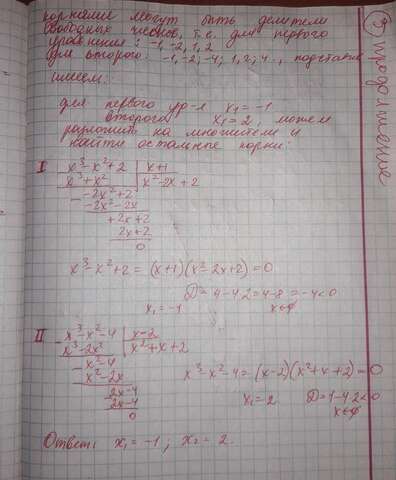 корнями могут быть делители
свободных членов, т.е. для первого
уравнения: -1, -2, 1, 2
для второго: -1, -2, -4, 1, 2, 4, подставив
имеем:
③ продолжение
для первого ур-я x₁ = -1
второго x₁ = 2, можем
разложить на множители и
найти остальные корни:
I x³ - x² + 2 | x+1
x³ + x² | x² - 2x + 2
- -2x² + 2
-2x² - 2x
+2x + 2
2x + 2
0
x³ - x² + 2 = (x+1)(x² - 2x + 2) = 0
x₁ = -1 D = 4 - 4·2 = 4 - 8 = -4 < 0
x ∈ ∅
II - x³ - x² - 4 | x - 2
x³ - 2x² | x² + x + 2
- x² - 4
x² - 2x
2x - 4
2x - 4
0
x³ - x² - 4 = (x-2)(x² + x + 2) = 0
x₁ = 2 D = 1 - 4·2 < 0
x ∈ ∅
Ответ: x₁ = -1; x₂ = 2.